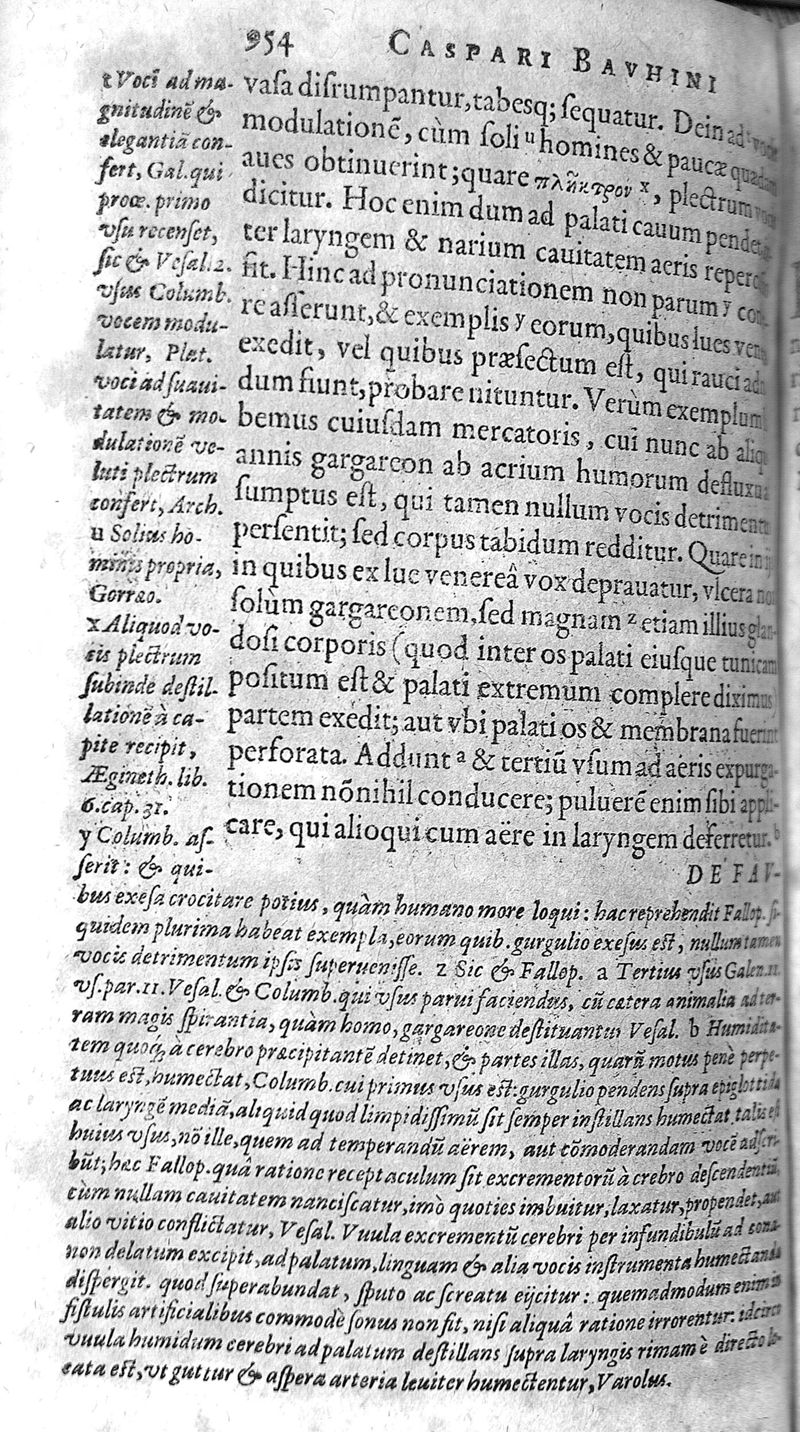 954 CASPARI BAVHINI
vasa disrumpantur, tabesq; sequatur. Dein ad
modulationē, cùm soli ᵘ homines & paucæ quædam
aues obtinuerint; quare πλῆκτρον ˣ, plectrum vocis
dicitur. Hoc enim dum ad palati cauum pendet
ter laryngem & narium cauitatem aeris
fit. Hinc ad pronunciationem non parum ʸ con-
re asserunt, & exemplis ʸ eorum, quibus lues
exedit, vel quibus præsectum est, qui rauci
dum fiunt, probare nituntur. Verùm exemplum
bemus cuiusdam mercatoris, cui nunc ab
annis gargareon ab acrium humorum
sumptus est, qui tamen nullum vocis
persentit; sed corpus tabidum redditur. Quare in
in quibus ex lue venereâ vox deprauatur, vlcera non
solùm gargareonem, sed magnam ᶻ etiam illius glan-
dosi corporis (quod inter os palati eiusque tunicam
positum est & palati extremum complere diximus)
partem exedit; aut vbi palati os & membrana fuerint
perforata. Addunt ᵃ & tertiū vsum ad aeris expurga-
tionem nōnihil conducere; puluerē enim sibi appli-
care, qui alioqui cum aëre in laryngem deferretur. ᵇ
DE FAV-
t Voci ad ma-
gnitudinē &
elegantiā con-
fert, Gal. qui
proœ. primo
vsu recenset,
sic & Vesal. 2.
vsus Columb.
vocem modu-
latur, Plat.
voci ad suaui-
tatem & mo-
dulationē ve-
luti plectrum
confert, Arch.
u Solius ho-
minis propria,
Gorrao.
x Aliquod vo-
cis plectrum
subinde destil-
lationē à ca-
pite recipit,
Ægineth. lib.
6. cap. 31.
y Columb. as-
serit: & qui-
bus exesa crocitare potius, quàm humano more loqui: hac reprehendit Fallop. si-
quidem plurima habeat exempla, eorum quib. gurgulio exesus est, nullum tamen
vocis detrimentum ipsis superuenisse. z Sic & Fallop. a Tertius vsus Galen. 11.
vs. par. 11. Vesal. & Columb. qui vsus parui faciendus, cū cætera animalia ad ter-
ram magis spirantia, quàm homo, gargareone destituantur Vesal. b Humidita-
tem quoq; à cerebro præcipitantē detinet, & partes illas, quarū motus penè perpe-
tuus est, humectat, Columb. cui primus vsus est: gurgulio pendens supra epiglottida
ac laryngē mediā, aliquid quod limpidissimū sit semper instillans humectat talis est
huius vsus, nō ille, quem ad temperandū aërem, aut cōmoderandam vocē adscri-
būt; hac Fallop. quâ ratione receptaculum sit excrementorū à crebro descendentiū,
cùm nullam cauitatem nanciscatur, imò quoties imbuitur, laxatur, propendet, aut
alio vitio conflictatur, Vesal. Vuula excrementū cerebri per infundibulū ad
non delatum excipit, ad palatum, linguam & alia vocis instrumenta humectanda
dispergit. quod superabundat, sputo ac screatu eijcitur: quemadmodum enim in
fistulis artificialibus commodè sonus non fit, nisi aliquâ ratione irrorentur: idcirco
vuula humidum cerebri ad palatum destillans supra laryngis rimam è directo lo-
cata est, vt guttur & aspera arteria leuiter humectentur, Varolus.